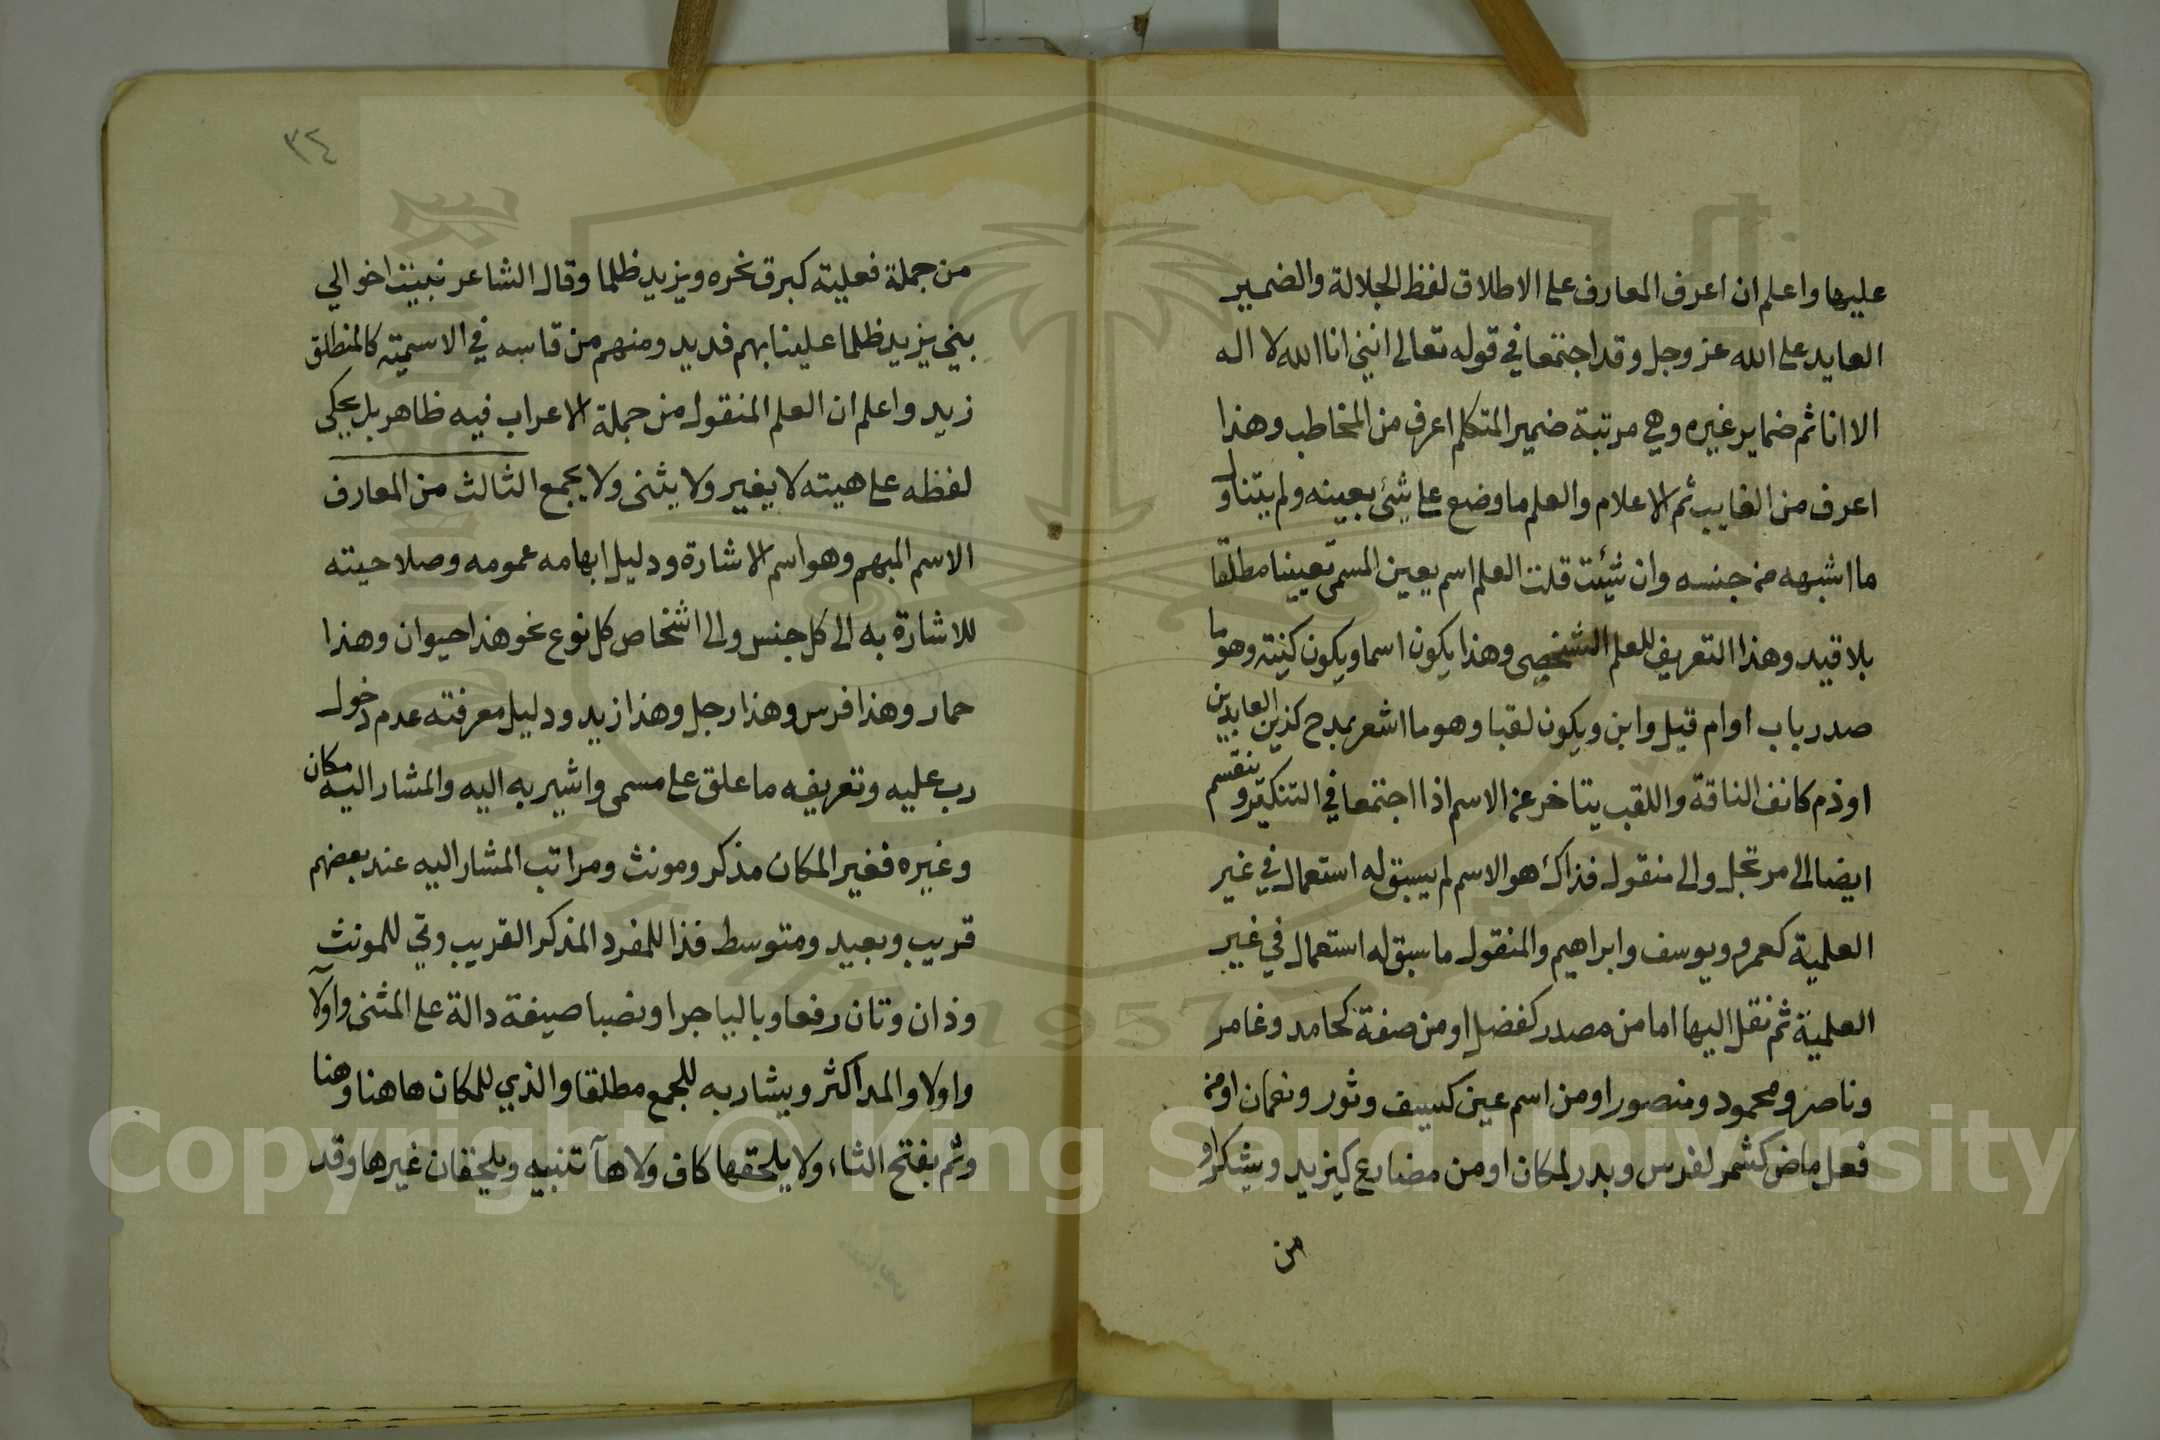 عليها واعلم ان اعرف المعارف على الاطلاق لفظ الجلالة والضمير
العايد على الله عز وجل وقد اجتمعا في قوله تعالى انني انا الله لا اله
الا انا ثم ضماير غيره وهي مرتبة ضمير المتكلم اعرف من المخاطب وهذا
اعرف من الغايب ثم الاعلام والعلم ما وضع على شئ بعينه ولم يتناول
ما اشبهه من جنسه وان شئت قلت العلم اسم يعين المسمى تعيينا مطلقا
بلا قيد وهذا التعريف للعلم الشخصي وهذا يكون اسما ويكون كنية وهو ما
صدر باب او ام قيل وابن ويكون لقبا وهو ما اشعر بمدح كزين العابدين
او ذم كانف الناقة واللقب يتاخر عن الاسم اذا اجتمعا في التنكير وتنقسم
ايضا الى مرتجل والى منقول فذاك هو الاسم لم يسبق له استعمال في غير
العلمية كعمر ويوسف وابراهيم والمنقول ما سبق له استعمال في غير
العلمية ثم نقل اليها اما من مصدر كفضل او من صفة كحامد وغامر
وناصر ومحمود ومنصور او من اسم عين كسيف وثور ونعمان او من
فعل ماض كشمر لفرس وبدر لمكان او من مضارع كيزيد ويشكر او
من
٣٤
من جملة فعلية كبرق نحره ويزيد ظلما وقال الشاعر نبيت اخوالي
بني يزيد ظلما علينا بهم فديد ومنهم من قاسه في الاسمية كالمنطلق
زيد واعلم ان العلم المنقول من جملة الاعراب فيه ظاهر بل يحكى
لفظه على هيته لا يغير ولا يثنى ولا يجمع الثالث من المعارف
الاسم المبهم وهو اسم الاشارة ودليل ابهامه عمومه وصلاحيته
للاشارة به الى كل جنس والى اشخاص كل نوع نحو هذا حيوان وهذا
حمار وهذا فرس وهذا رجل وهذا زيد ودليل معرفته عدم دخول
رب عليه وتعريفه ما علق على مسمى واشير به اليه والمشار اليه مكان
وغيره فغير المكان مذكر ومونث ومراتب المشار اليه عند بعضهم
قريب وبعيد ومتوسط فذا للمفرد المذكر القريب وتي للمونث
وذان وتان رفعا وباليا جرا ونصبا صيغة دالة على المثنى واولآ
واولا والمد اكثر ويشار به للجمع مطلقا والذي للمكان هاهنا وهنا
وثم بفتح الثاء ولا يلحقها كاف ولا هآ تنبيه ويلحقان غيرها وقد
Copyright © King Saud University
1957